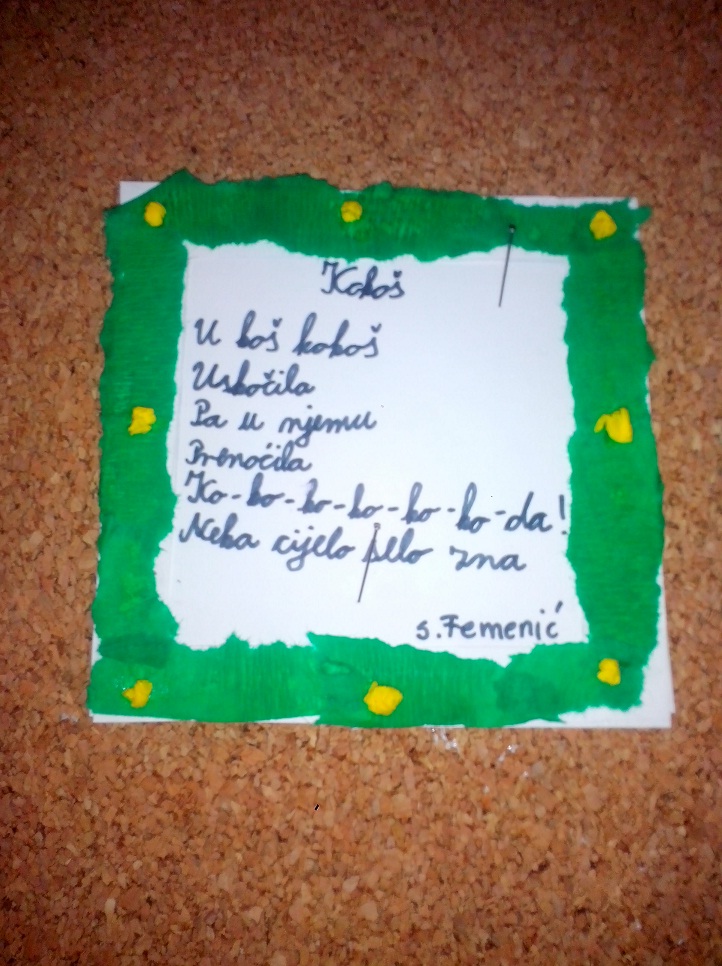 Kokoš
U koš kokoš
Uskočila
Pa u njemu
Prenoćila
Ko-ko-ko-ko-ko-ko-da!
Neka cijelo selo zna
S. Femenić